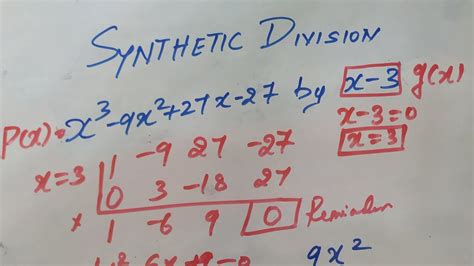 SYNTHETIC DIVISION
P(x)= x³-9x²+27x-27 by x-3 g(x)
x-3=0
x=3
x=3 1 -9 27 -27
0 3 -18 27
x 1 -6 9 0 Remiader
9x²